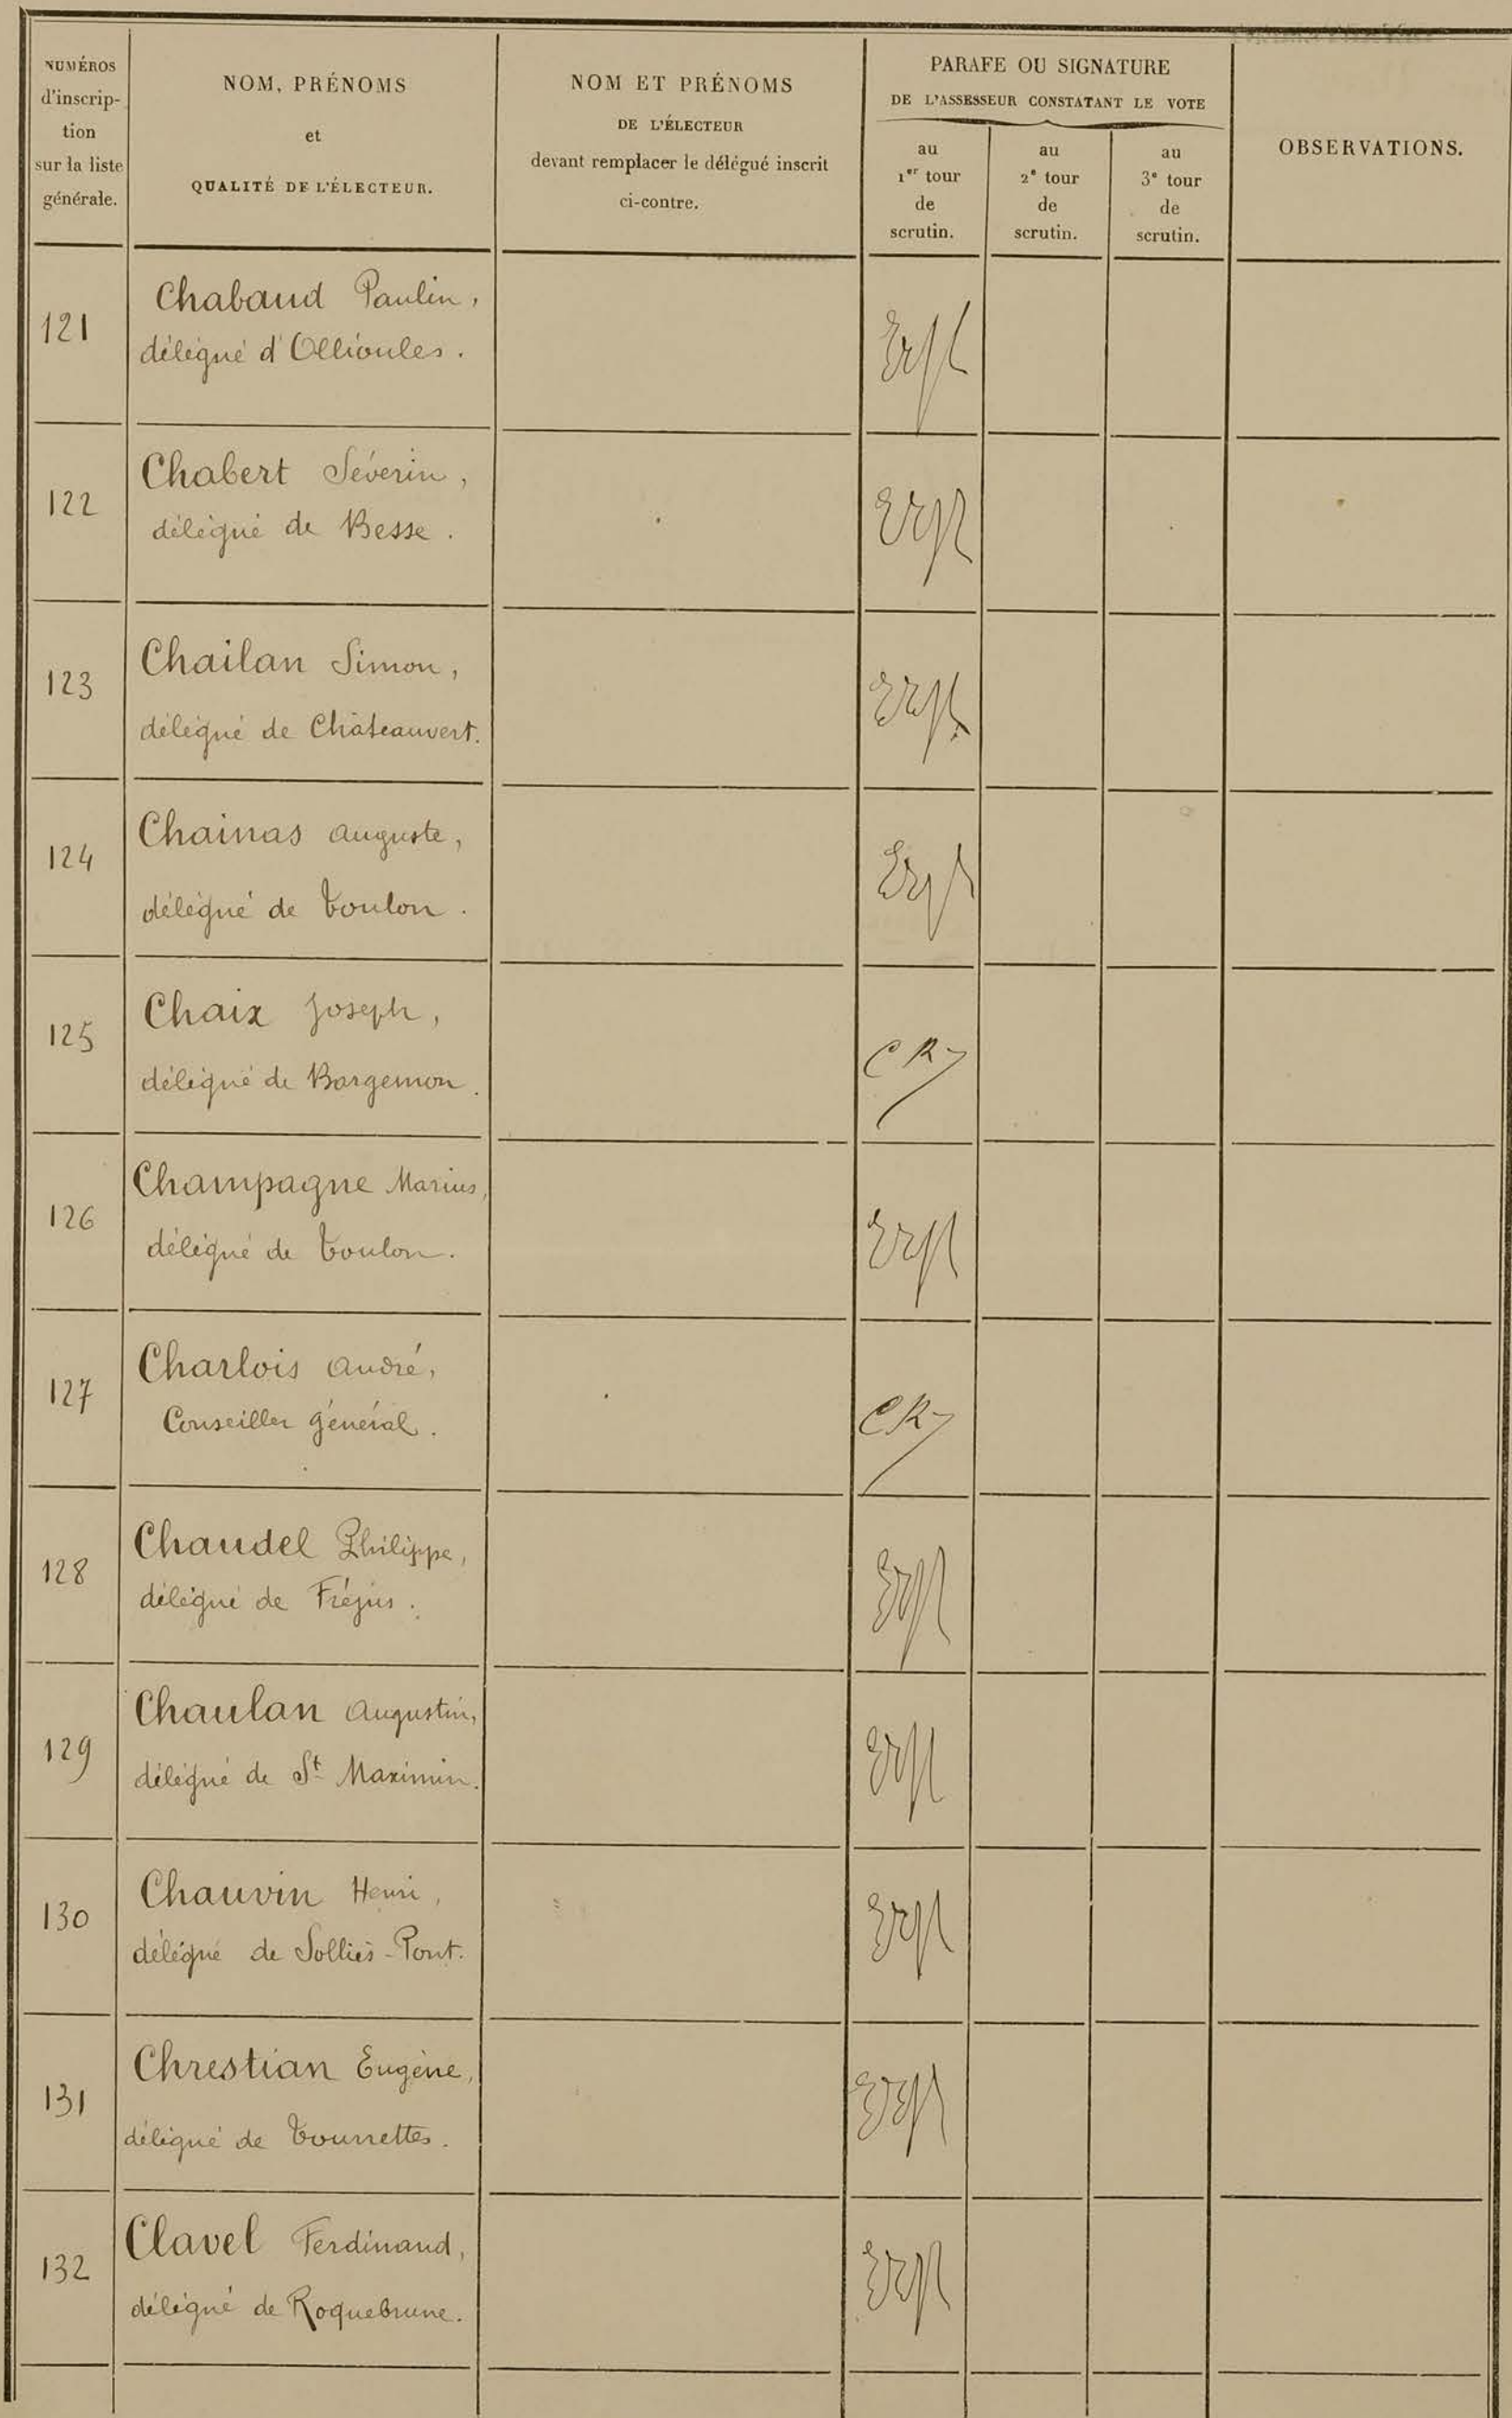 NUMÉROS
d'inscrip-
tion
sur la liste
générale.
NOM, PRÉNOMS
et
QUALITÉ DE L'ÉLECTEUR.
NOM ET PRÉNOMS
DE L'ÉLECTEUR
devant remplacer le délégué inscrit
ci-contre.
PARAFE OU SIGNATURE
DE L'ASSESSEUR CONSTATANT LE VOTE
au
1er tour
de
scrutin.
au
2e tour
de
scrutin.
au
3e tour
de
scrutin.
OBSERVATIONS.
121
Chabaud Paulin,
délégué d'Ollioules.
122
Chabert Séverin,
délégué de Besse.
123
Chailan Simon,
délégué de Châteauvert.
124
Chainas Auguste,
délégué de Toulon.
125
Chaix Joseph,
délégué de Bargemon.
CR
126
Champagne Marius,
délégué de Toulon.
127
Charlois André,
Conseiller général.
CR
128
Chaudel Philippe,
délégué de Fréjus.
129
Chaulan Augustin,
délégué de St Maximin.
130
Chauvin Henri,
délégué de Solliès-Pont.
131
Chrestian Eugène,
délégué de Tourrettes.
132
Clavel Ferdinand,
délégué de Roquebrune.